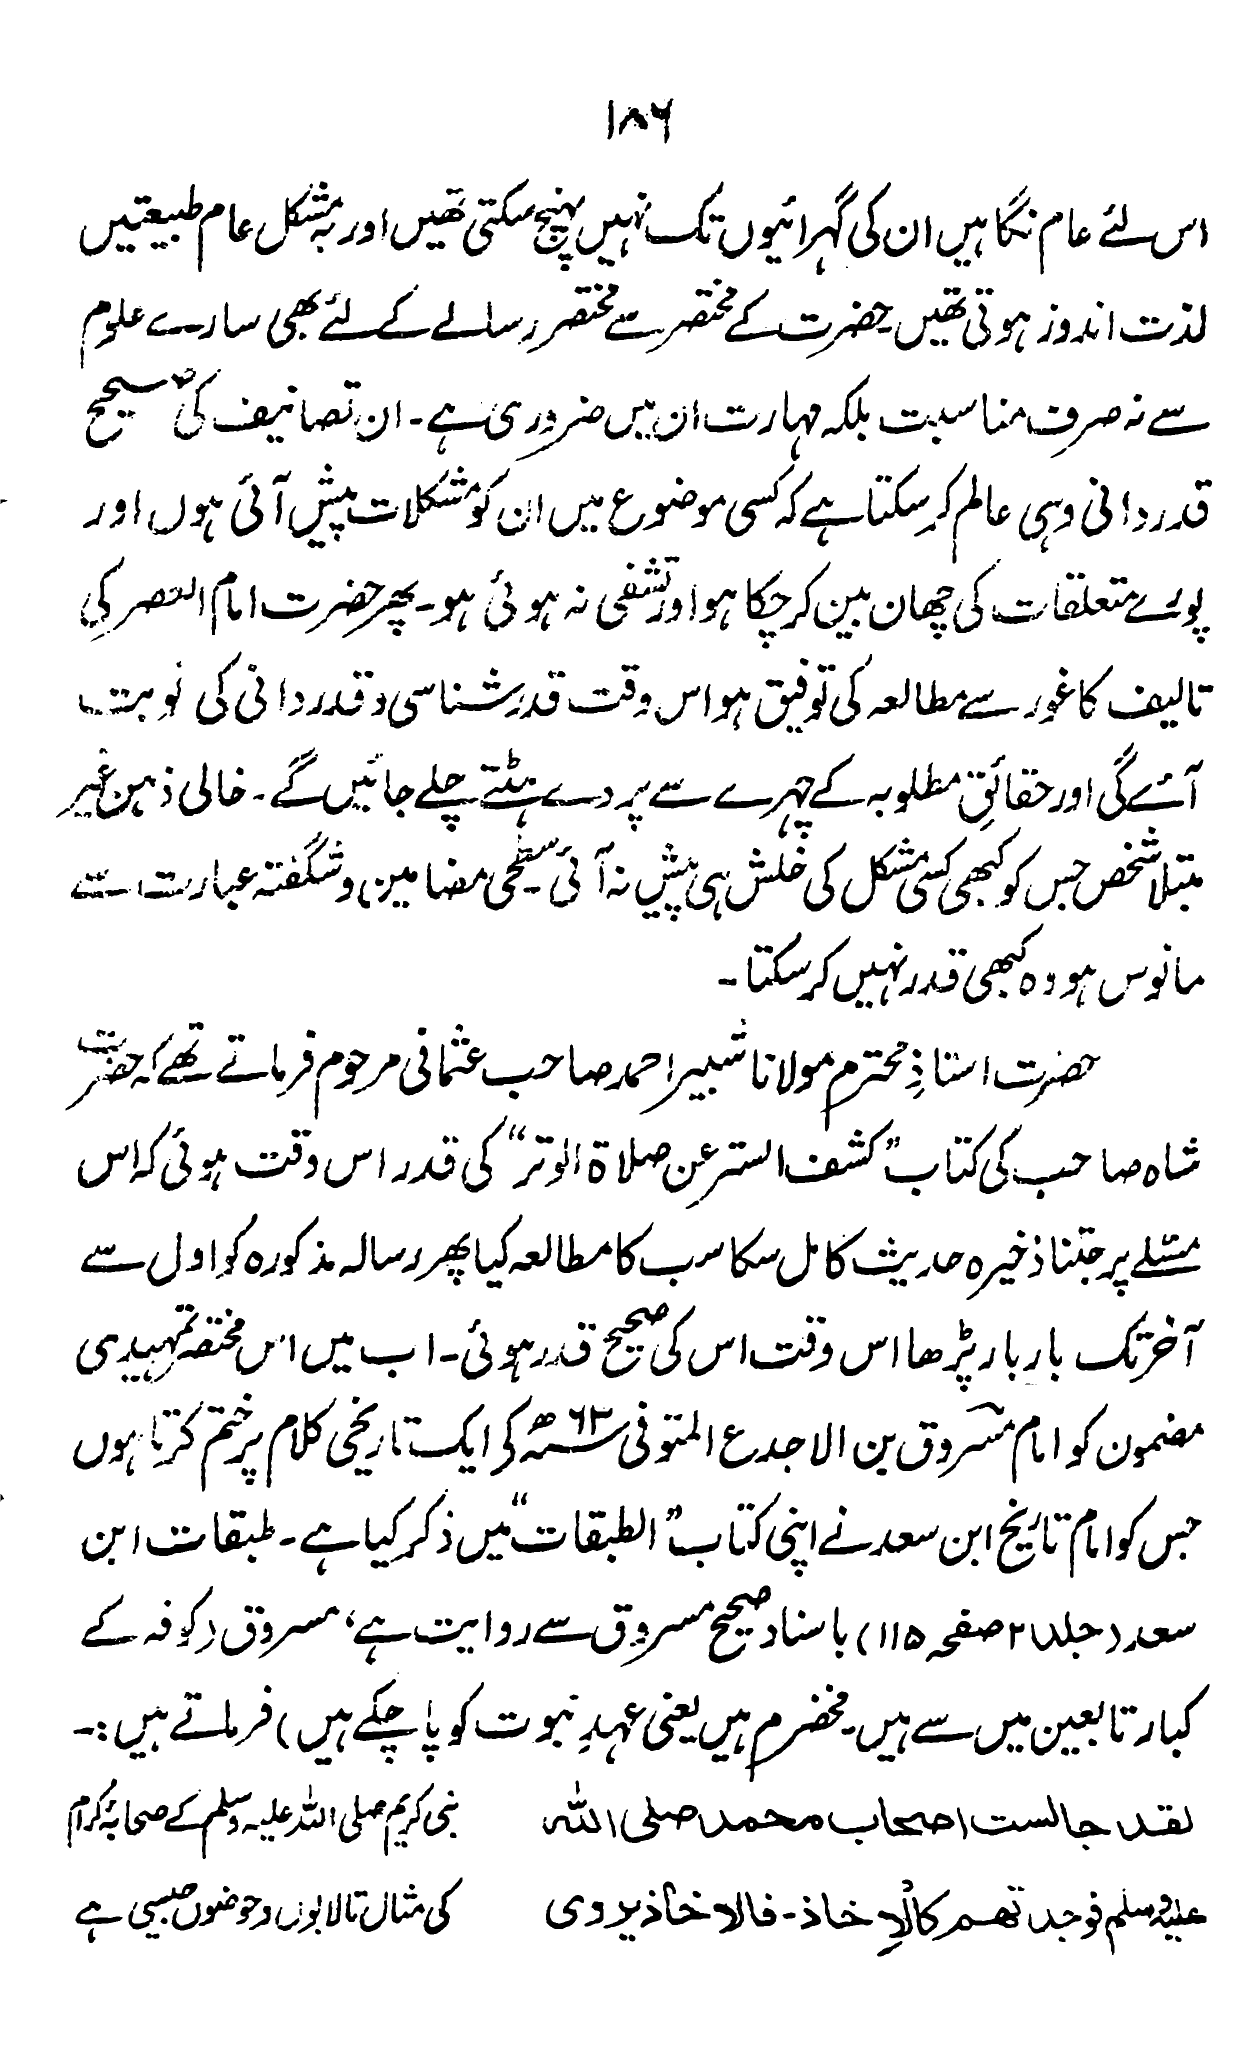 ۱۸۶
اس لئے عام نگاہیں ان کی گہرائیوں تک نہیں پہنچ سکتی تھیں اور بہ مشکل عام طبیعتیں
لذت اندوز ہوتی تھیں۔ حضرت کے مختصر سے مختصر رسالے کے لئے بھی سارے علوم
سے نہ صرف مناسبت بلکہ مہارت ان میں ضروری ہے۔ ان تصانیف کی صحیح
قدردانی وہی عالم کر سکتا ہے کہ کسی موضوع میں ان کو مشکلات پیش آئی ہوں اور
پورے متعلقات کی چھان بین کر چکا ہو اور تشفی نہ ہوئی ہو۔ پھر حضرت امام العصر کی
تالیف کا غور سے مطالعہ کی توفیق ہو اس وقت قدر شناسی و قدردانی کی نوبت
آئے گی اور حقائقِ مطلوبہ کے چہرے سے پردے ہٹتے چلے جائیں گے۔ خالی ذہن غیر
مبتلا شخص جس کو کبھی کسی مشکل کی خلش ہی پیش نہ آئی۔ سطحی مضامین و شگفتہ عبارت سے
مانوس ہو وہ کبھی قدر نہیں کر سکتا۔
حضرت استاذِ محترم مولانا شبیر احمد صاحب عثمانی مرحوم فرماتے تھے کہ حضرت
شاہ صاحب کی کتاب ”کشف الستر عن صلاۃ الوتر“ کی قدر اس وقت ہوئی کہ اس
مسئلے پر جتنا ذخیرہ حدیث کا مل سکا سب کا مطالعہ کیا پھر رسالہ مذکورہ کو اول سے
آخر تک بار بار پڑھا اس وقت اس کی صحیح قدر ہوئی۔ اب میں اس مختصر تمہیدی
مضمون کو امام مسروق بن الاجدع المتوفی ۶۳ھ کی ایک تاریخی کلام پر ختم کرتا ہوں
جس کو امام تاریخ ابن سعد نے اپنی کتاب ”الطبقات“ میں ذکر کیا ہے۔ طبقات ابن
سعد (جلد ۲ صفحہ ۱۱۵) باسناد صحیح مسروق سے روایت ہے، مسروق (کوفہ کے
کبار تابعین میں سے ہیں۔ مخضرم ہیں یعنی عہدِ نبوت کو پا چکے ہیں) فرماتے ہیں:۔
لقد جالست اصحاب محمد صلی اللہ نبی کریم صلی اللہ علیہ وسلم کے صحابۂ کرام
علیہ وسلم فوجدتهم کالاِخاذ۔ فالاخاذ یروی کی مثال تالابوں و حوضوں جیسی ہے